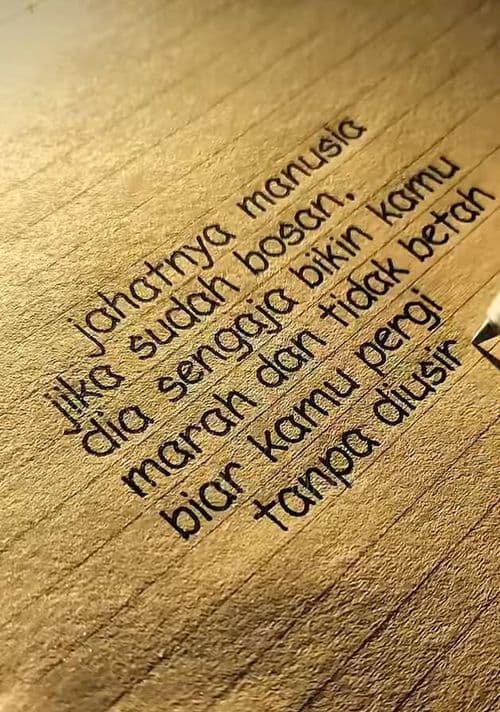 jahatnya manusia
jika sudah bosan,
dia sengaja bikin kamu
marah dan tidak betah
biar kamu pergi
tanpa diusir